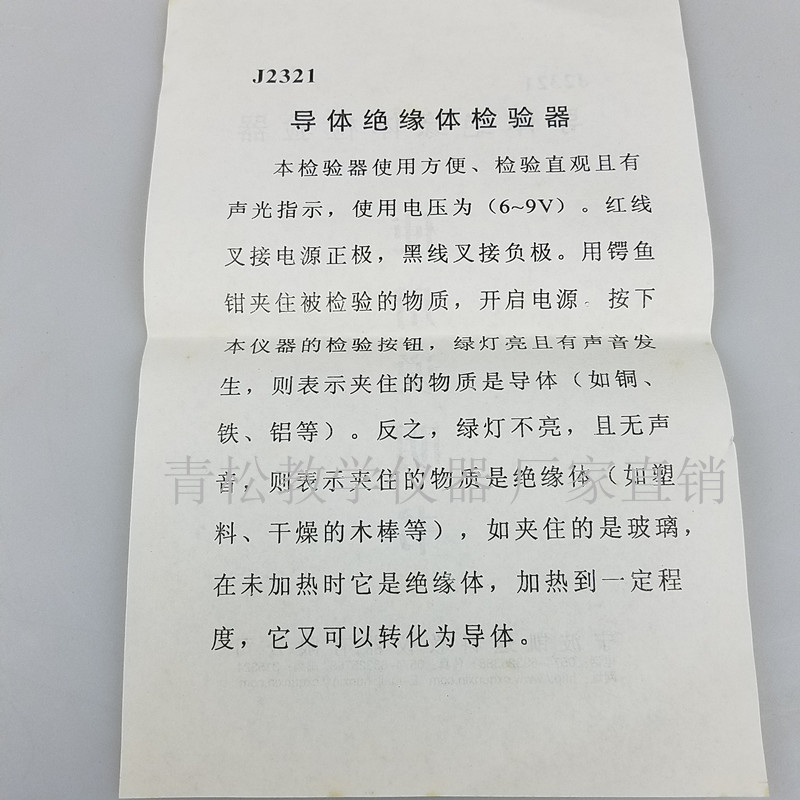 J2321
导体绝缘体检验器
本检验器使用方便、检验直观且有
声光指示，使用电压为（6~9V）。红线
叉接电源正极，黑线叉接负极。用锷鱼
钳夹住被检验的物质，开启电源。按下
本仪器的检验按钮，绿灯亮且有声音发
生，则表示夹住的物质是导体（如铜、
铁、铝等）。反之，绿灯不亮，且无声
音，则表示夹住的物质是绝缘体（如塑
料、干燥的木棒等），如夹住的是玻璃，
在未加热时它是绝缘体，加热到一定程
度，它又可以转化为导体。
青松教学仪器厂家直销